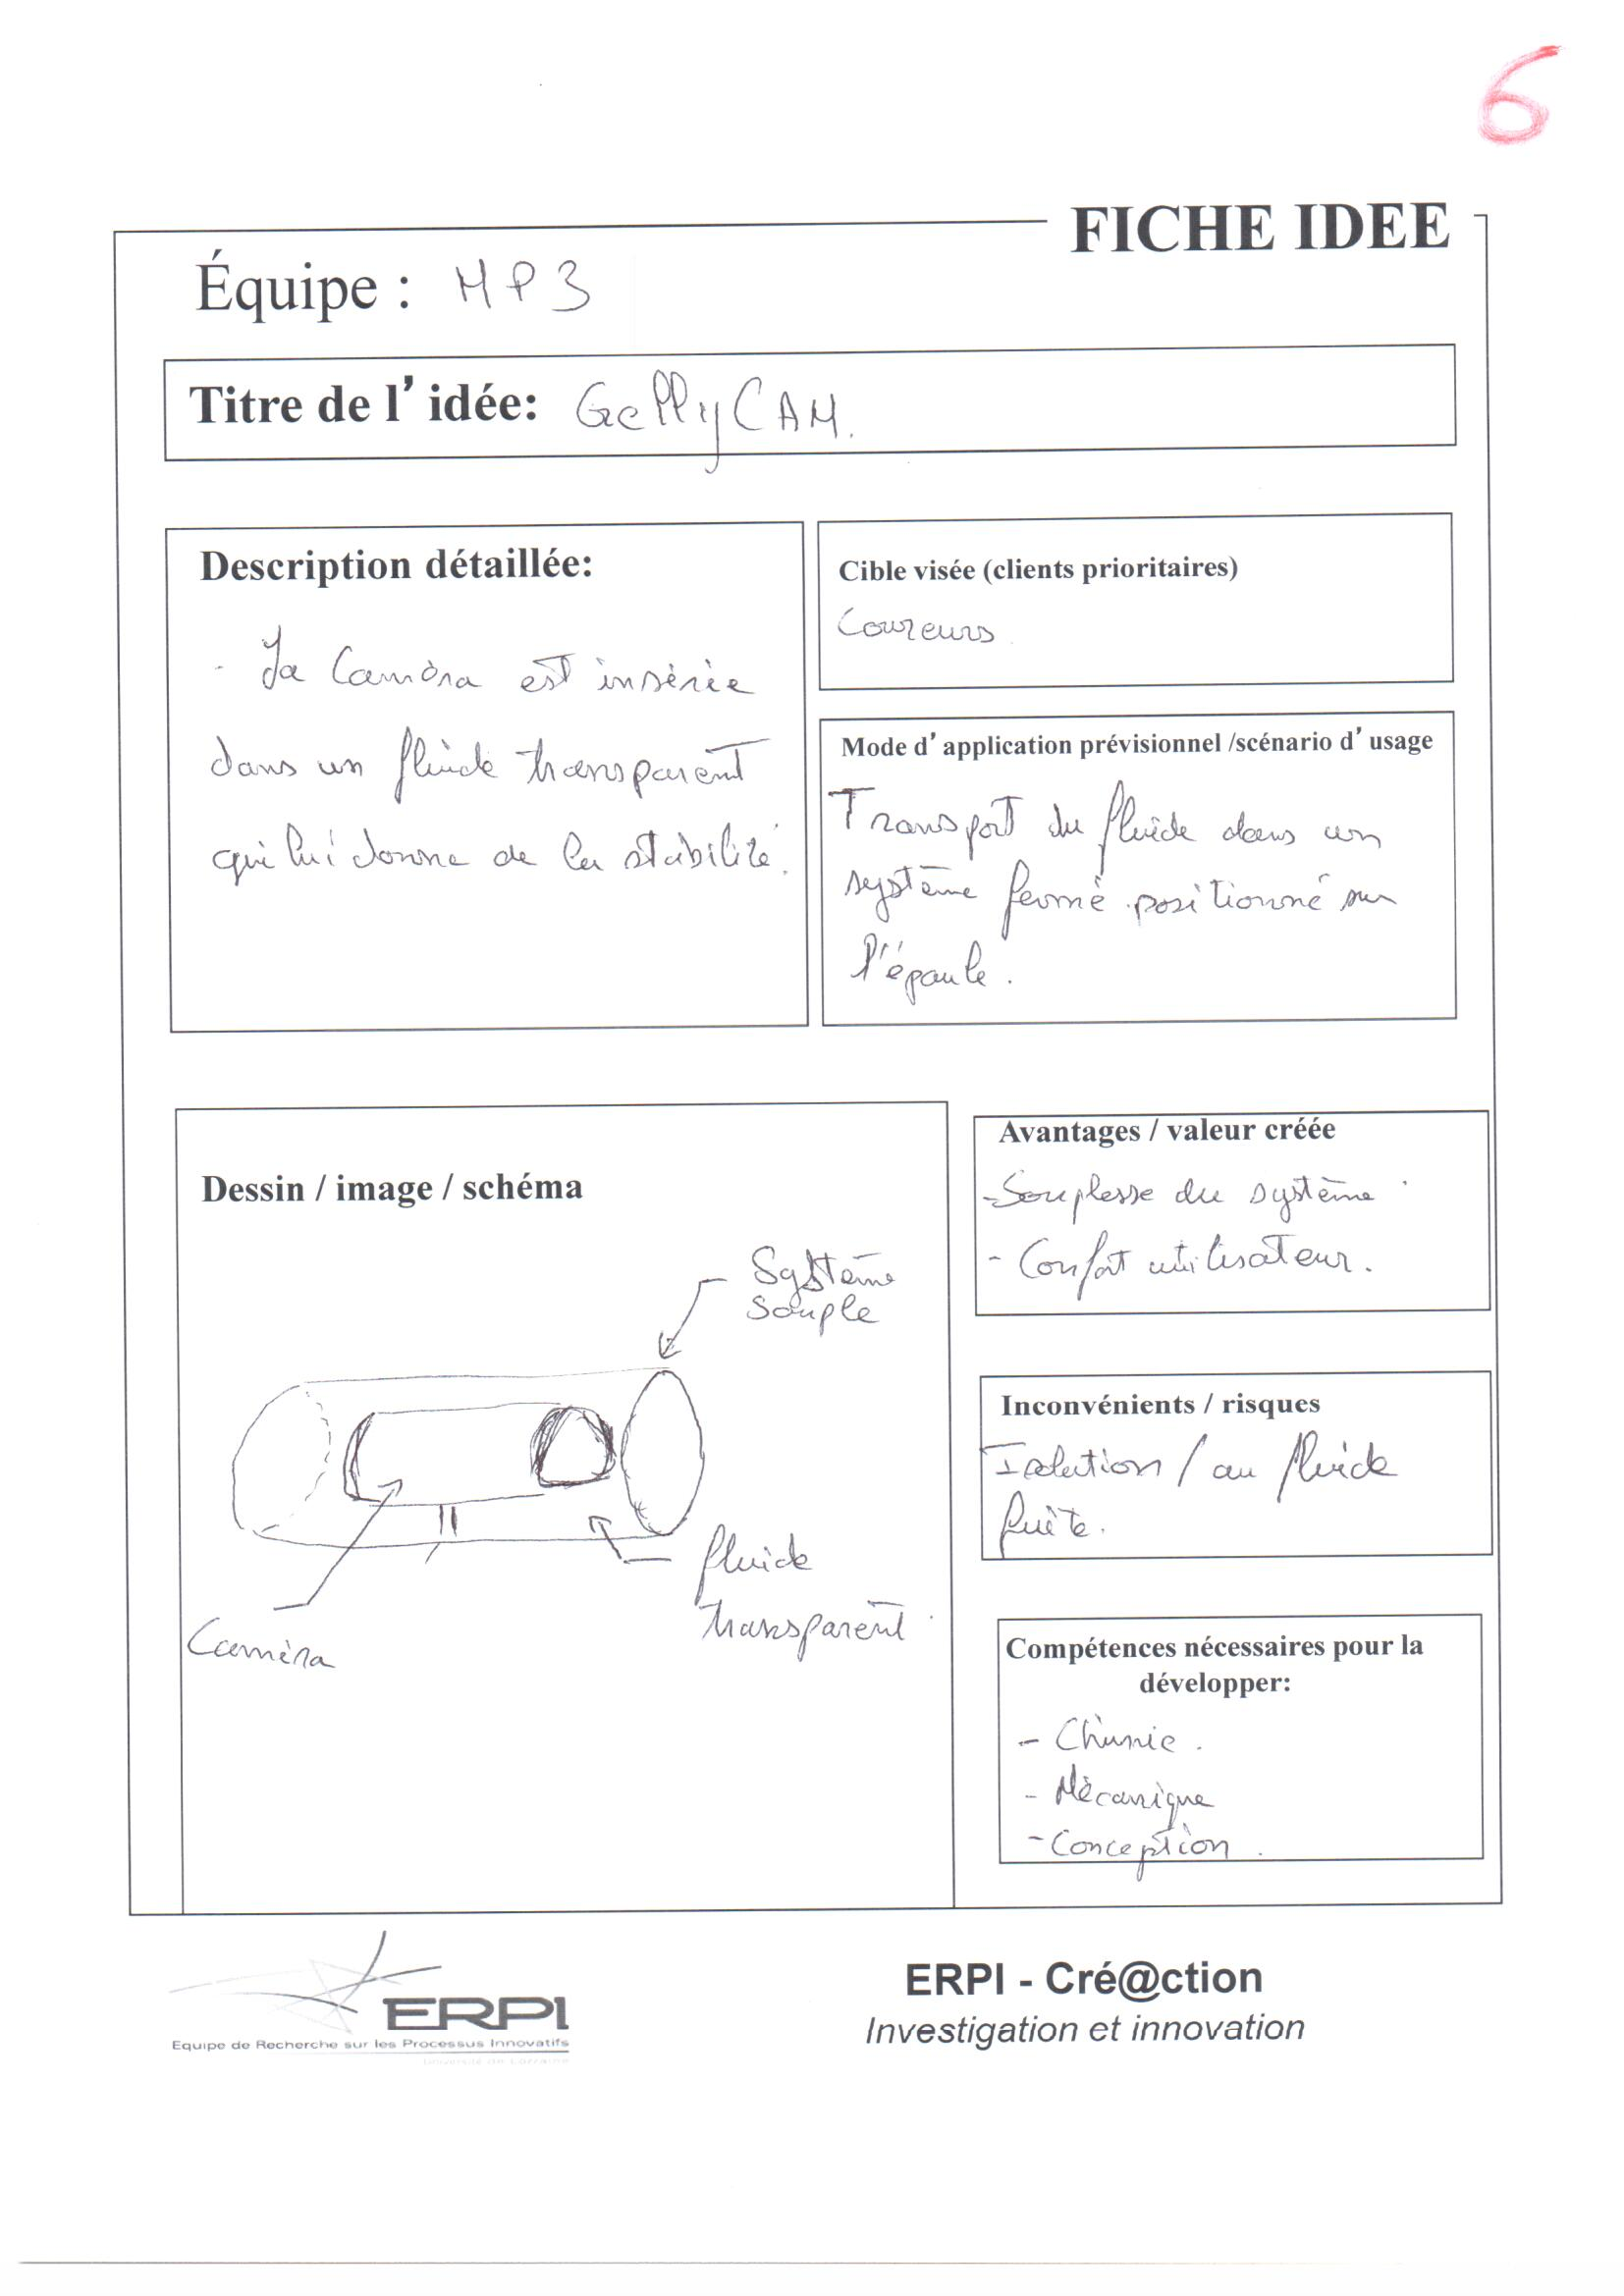 6
FICHE IDEE
Équipe : MP3
Titre de l'idée: GellyCAM.
Description détaillée:
- La Caméra est insérée
dans un fluide transparent
qui lui donne de la stabilité.
Cible visée (clients prioritaires)
Coureurs
Mode d'application prévisionnel /scénario d'usage
Transport du fluide dans un
système fermé positionné sur
l'épaule.
Dessin / image / schéma
Système
souple
fluide
transparent
Caméra
Avantages / valeur créée
- Souplesse du système
- Confort utilisateur.
Inconvénients / risques
Isolation / au fluide
fuite.
Compétences nécessaires pour la
développer:
- Chimie.
- Mécanique
- Conception.
ERPI
Equipe de Recherche sur les Processus Innovatifs
Université de Lorraine
ERPI - Cré@ction
Investigation et innovation